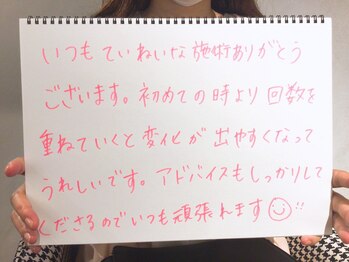 いつもていねいな施術ありがとう
ございます。初めての時より回数を
重ねていくと変化が出やすくなって
うれしいです。アドバイスもしっかりして
くださるのでいつも頑張れます!!